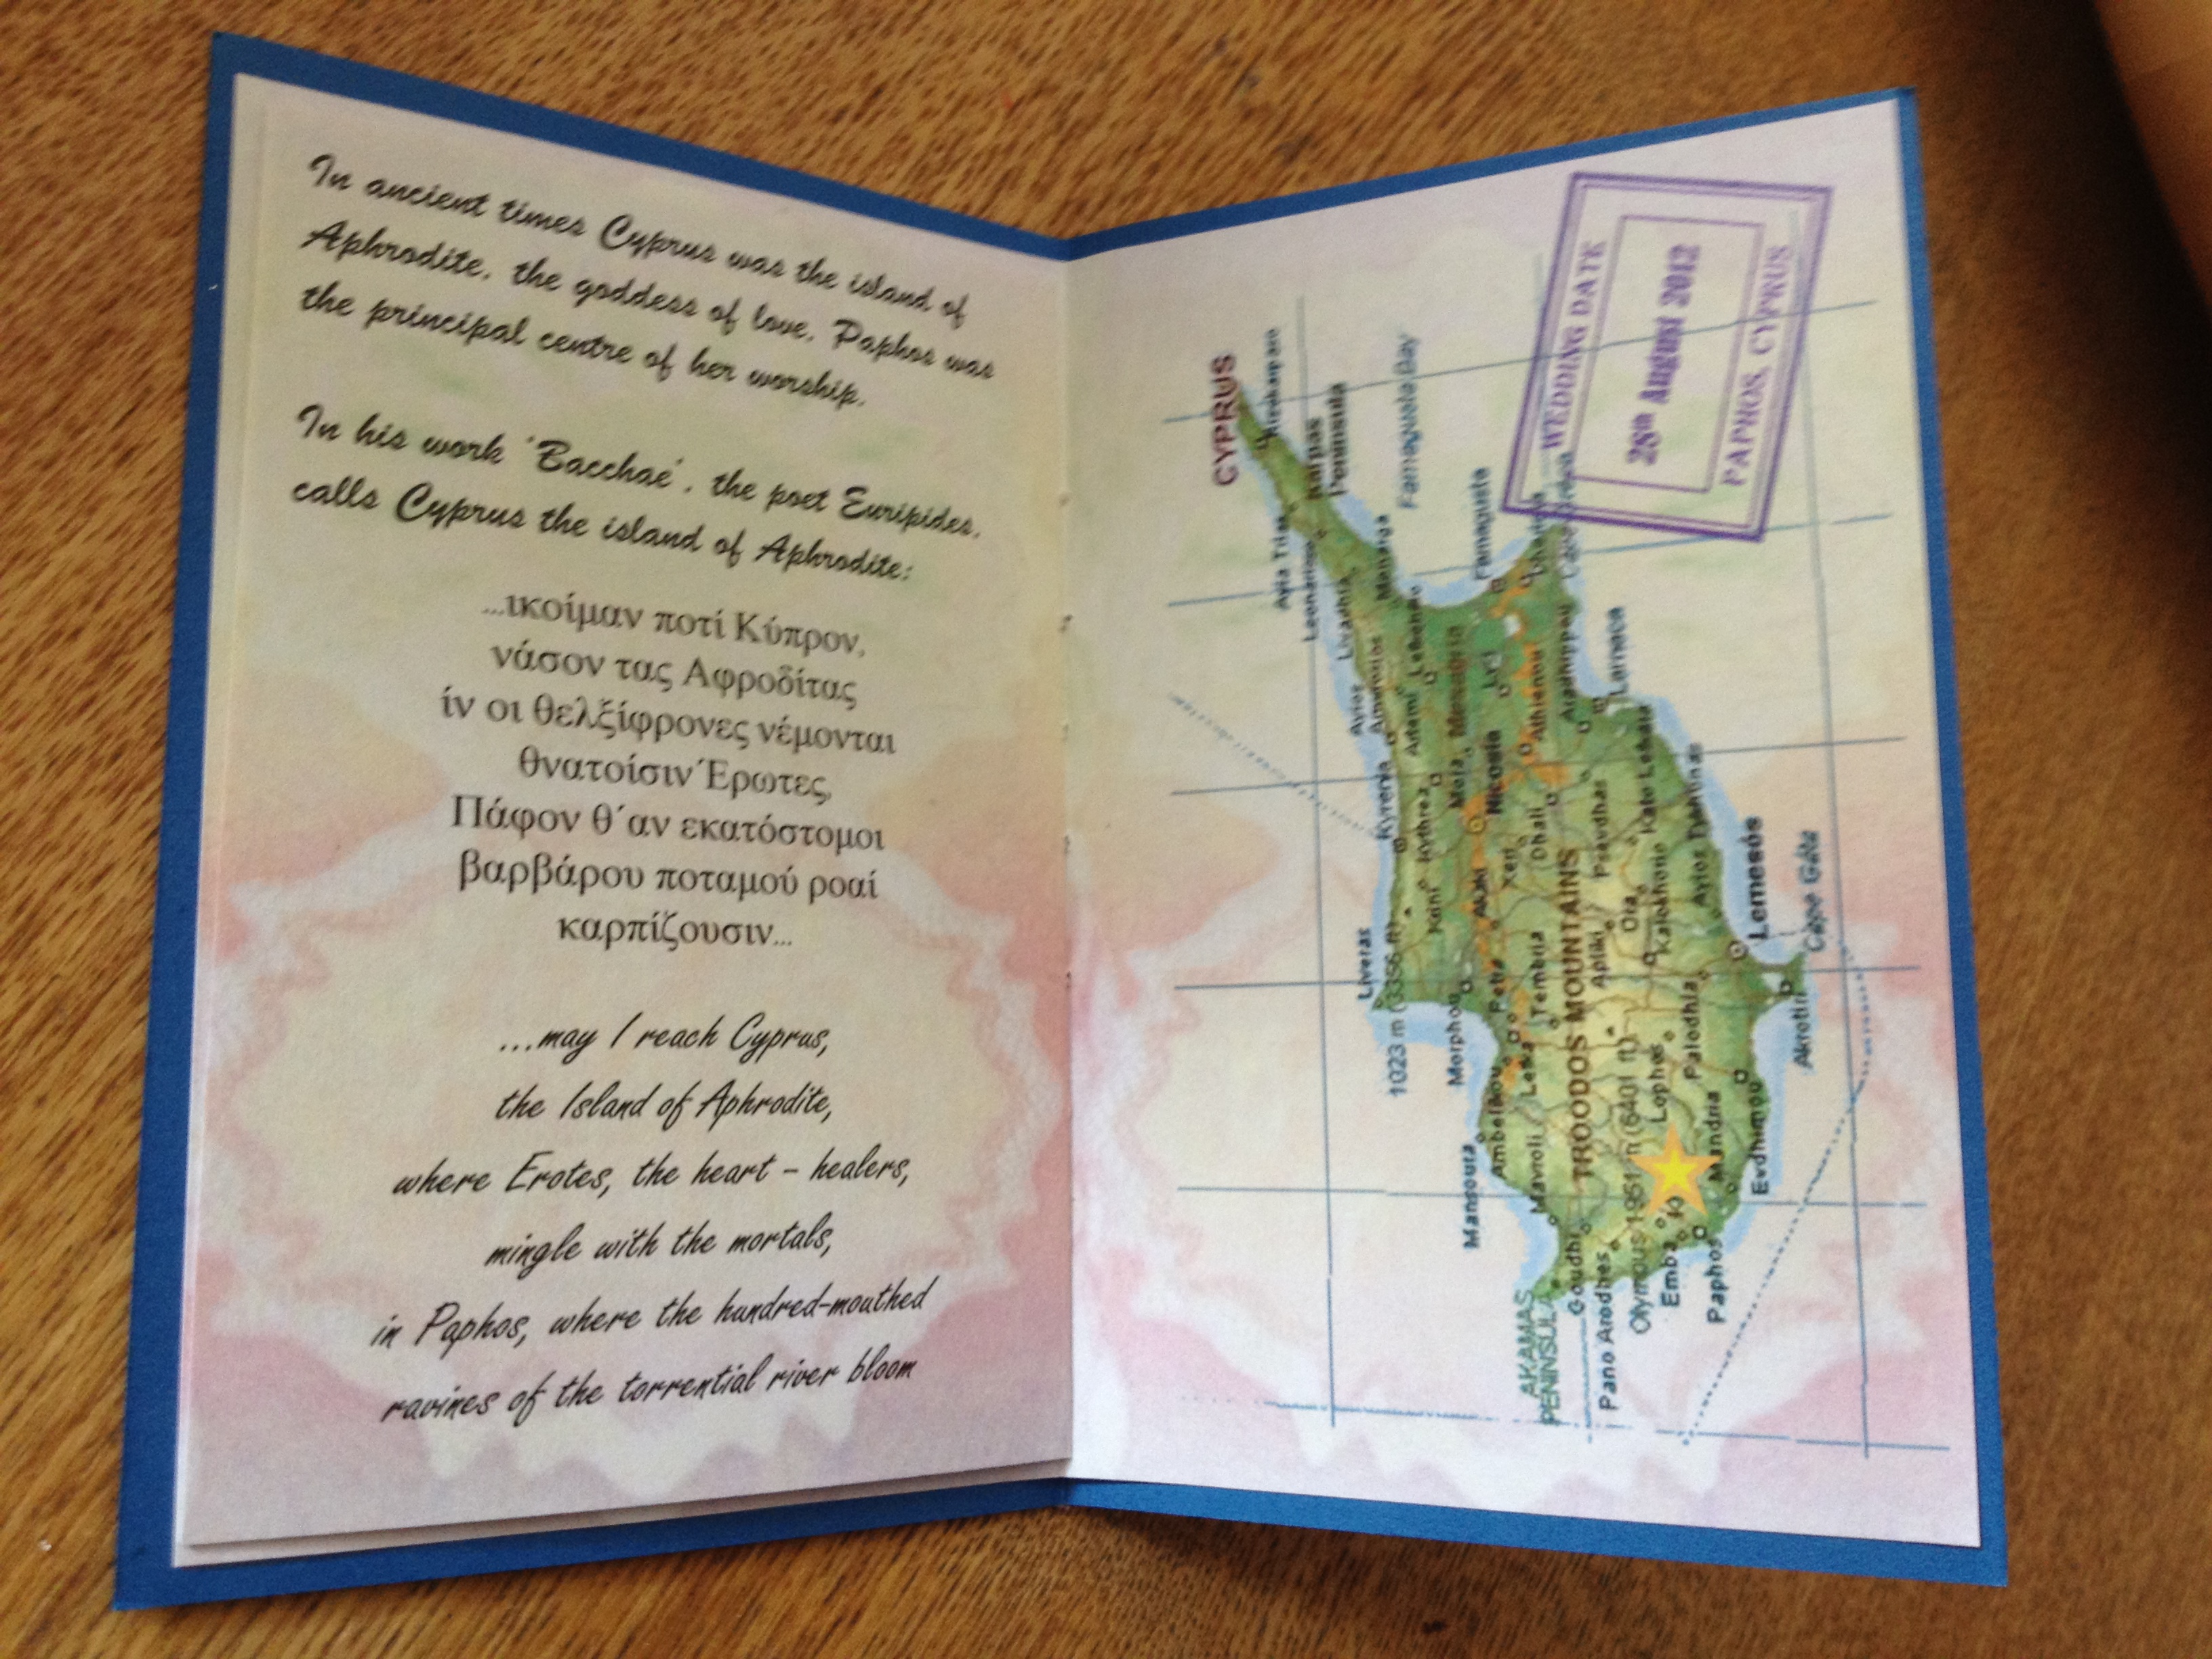 In ancient times Cyprus was the island of
Aphrodite, the goddess of love. Paphos was
the principal centre of her worship.
In his work 'Bacchae', the poet Euripides,
calls Cyprus the island of Aphrodite:
...ικοίμαν ποτί Κύπρον,
νάσον τας Αφροδίτας
ίν οι θελξίφρονες νέμονται
θνατοίσιν Έρωτες,
Πάφον θ΄αν εκατόστομοι
βαρβάρου ποταμού ροαί
καρπίζουσιν...
...may I reach Cyprus,
the Island of Aphrodite,
where Erotes, the heart - healers,
mingle with the mortals,
in Paphos, where the hundred-mouthed
ravines of the torrential river bloom
WEDDING DATE
28th August 2012
PAPHOS, CYPRUS
CYPRUS
Rizokarpaso
Karpas
Peninsula
Famagusta Bay
Ayia Trias
Leonarisso
Livadhia
Famagusta
Ayios
Amvrosios
Lefkoniko
Larnaca
Kyrenia
Kythrea
Nicosia
Athienou
Aradhippou
Dhali
Kato Lefkara
Liveras
1023 m (3356 ft)
Akaki
Ora
Kalokhorio
Lemesós
Cape Gata
Morphou
Petra
Tembria
Apliki
TROODOS MOUNTAINS
Palodhia
Akrotiri
Mansoura
Ambelikou
Lefka
Mavroli
Lophos
Mandria
Evdhimou
AKAMAS
PENINSULA
Goudhi
Pano Arodhes
Olympus 1951 m (6401 ft)
Emba
Paphos